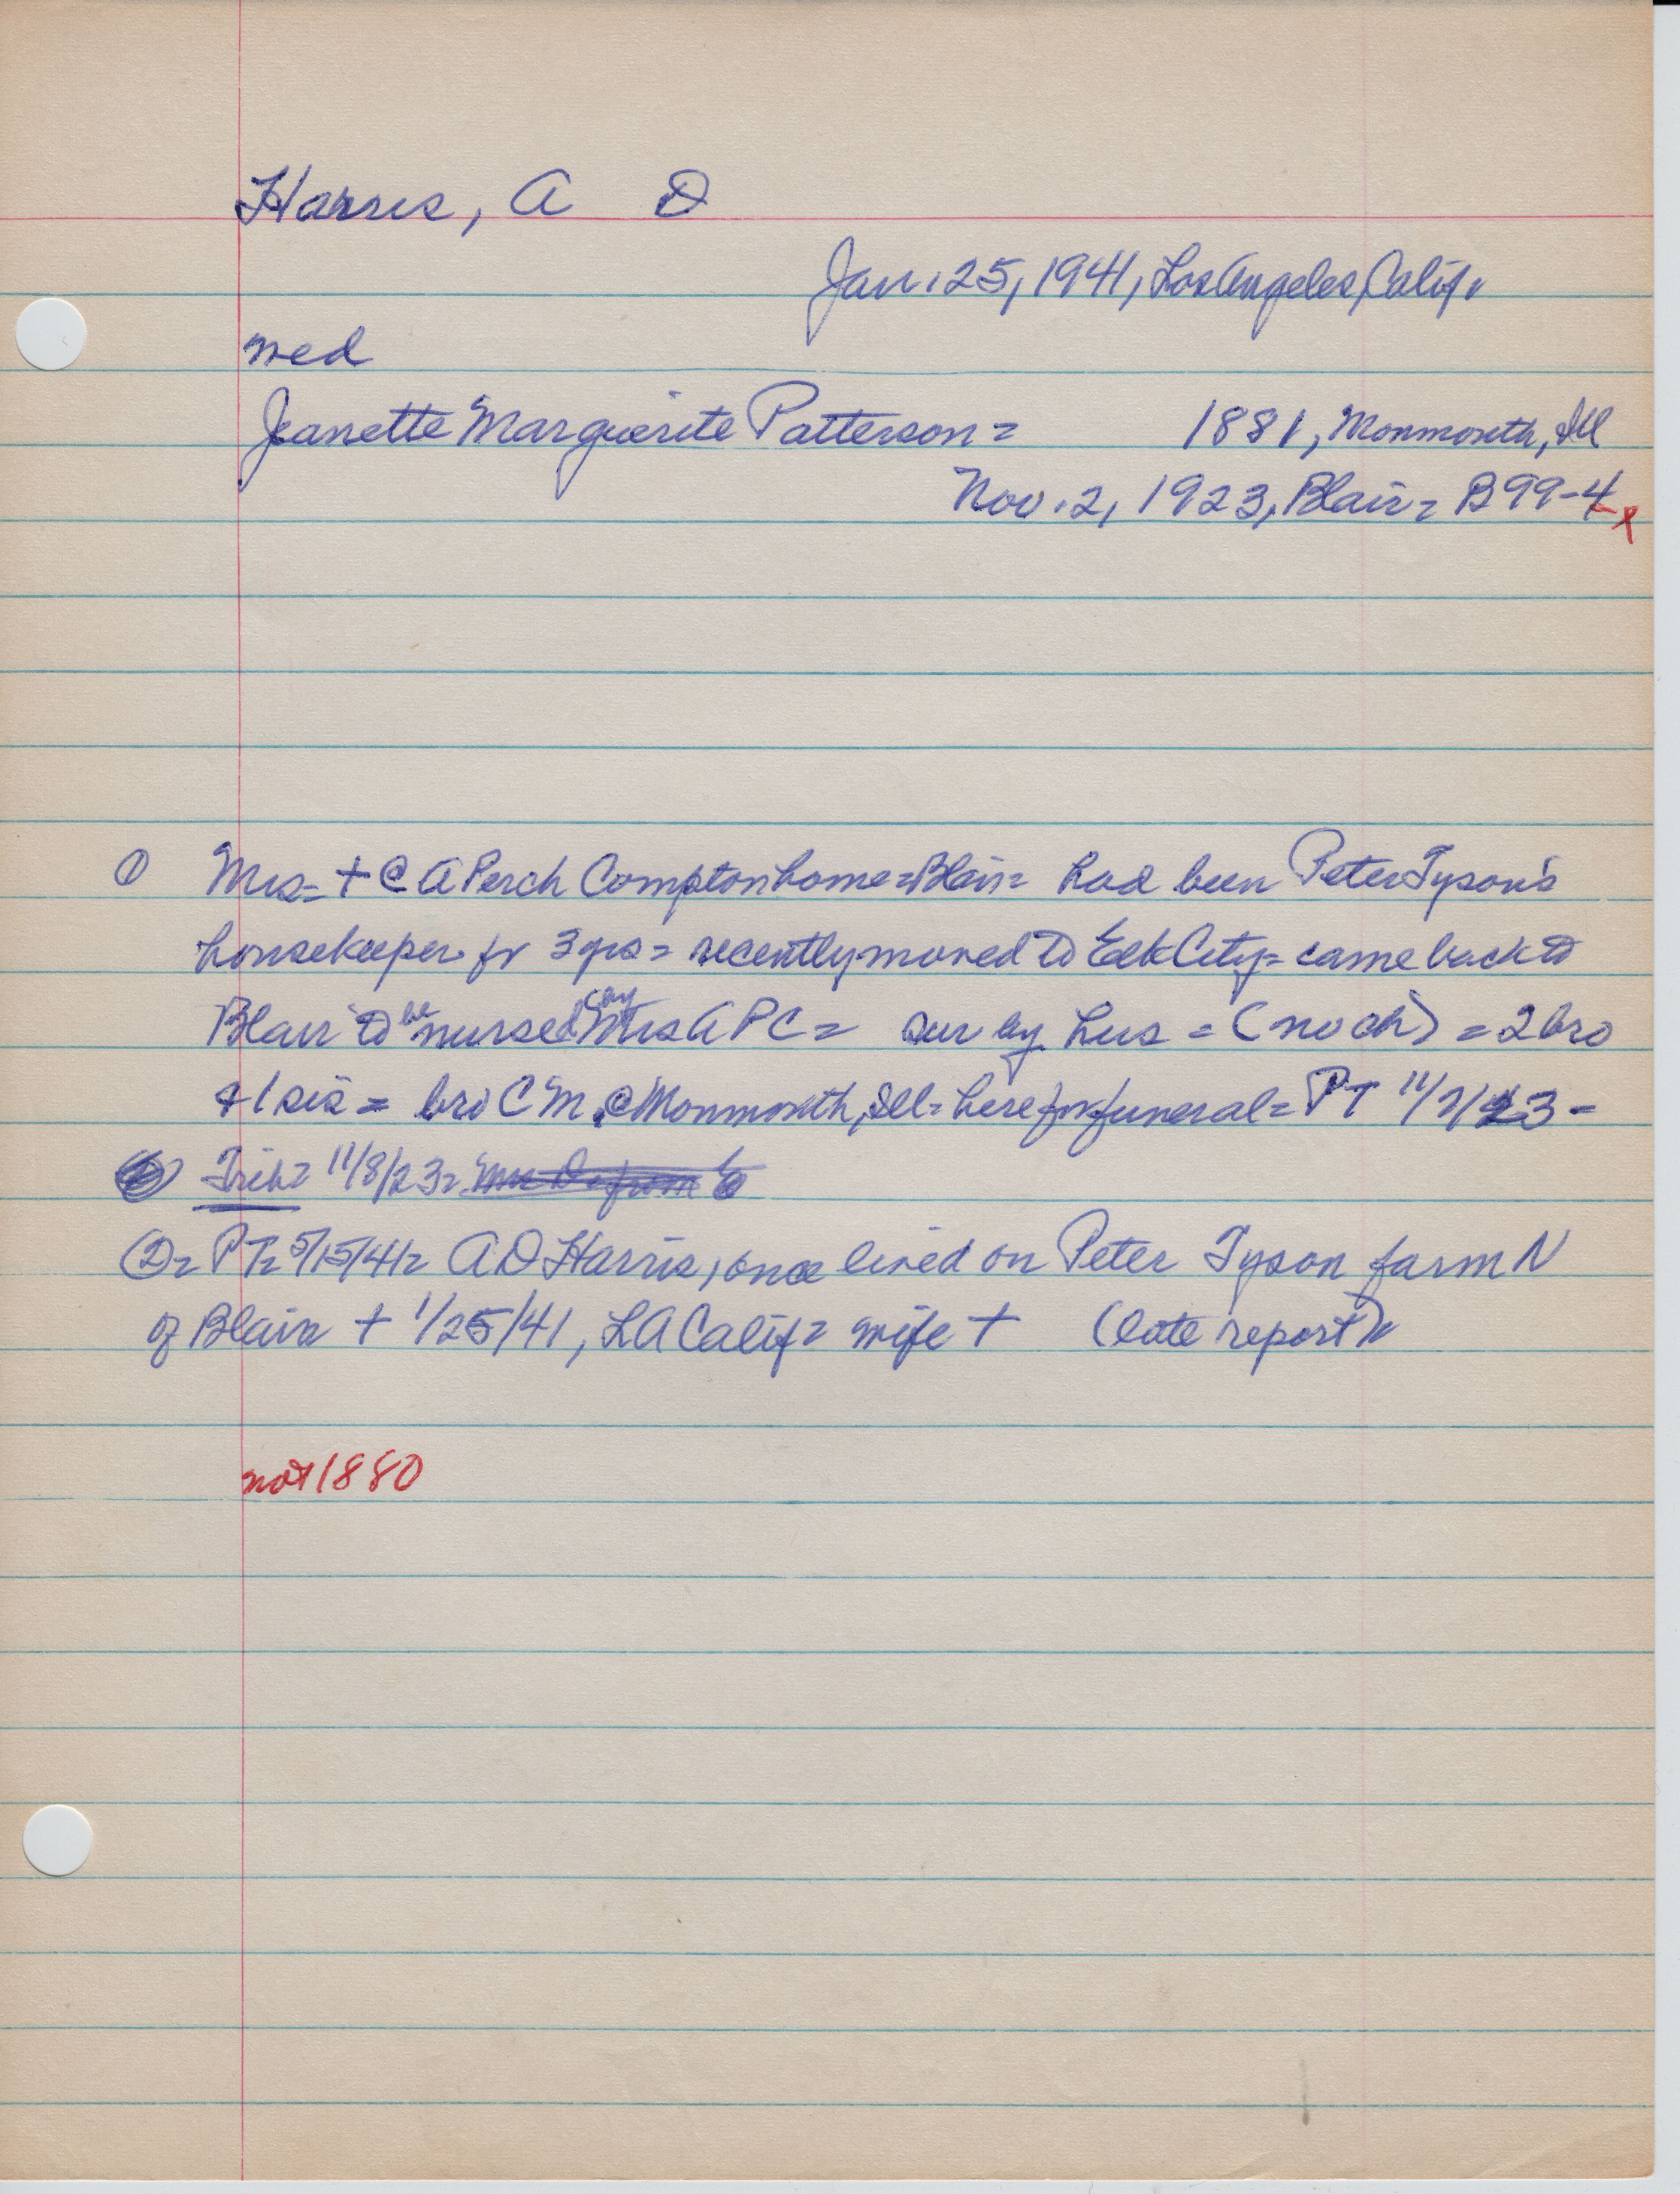 Harris, A D
Jan. 25, 1941, Los Angeles, Calif.
wed
Jeanette Marguerite Patterson = 1881, Monmouth, Ill
Nov. 2, 1923, Blair = B99-4 x
① Mrs = + @ A Perch Compton home = Blair = had been Peter Tyson's
housekeeper fr 3 yrs = recently moved to Elk City = came back to
Blair to be nursed by Mrs A P C = sur by hus = (no ch) = 2 bro
+ 1 sis = bro C M @ Monmouth, Ill = here for funeral = P T 11/7/23 =
Trib = 11/8/23 =
② = P T = 5/15/41 = A D Harris, once lived on Peter Tyson farm N
of Blair + 1/25/41, L A Calif = wife + (late report)
not 1880